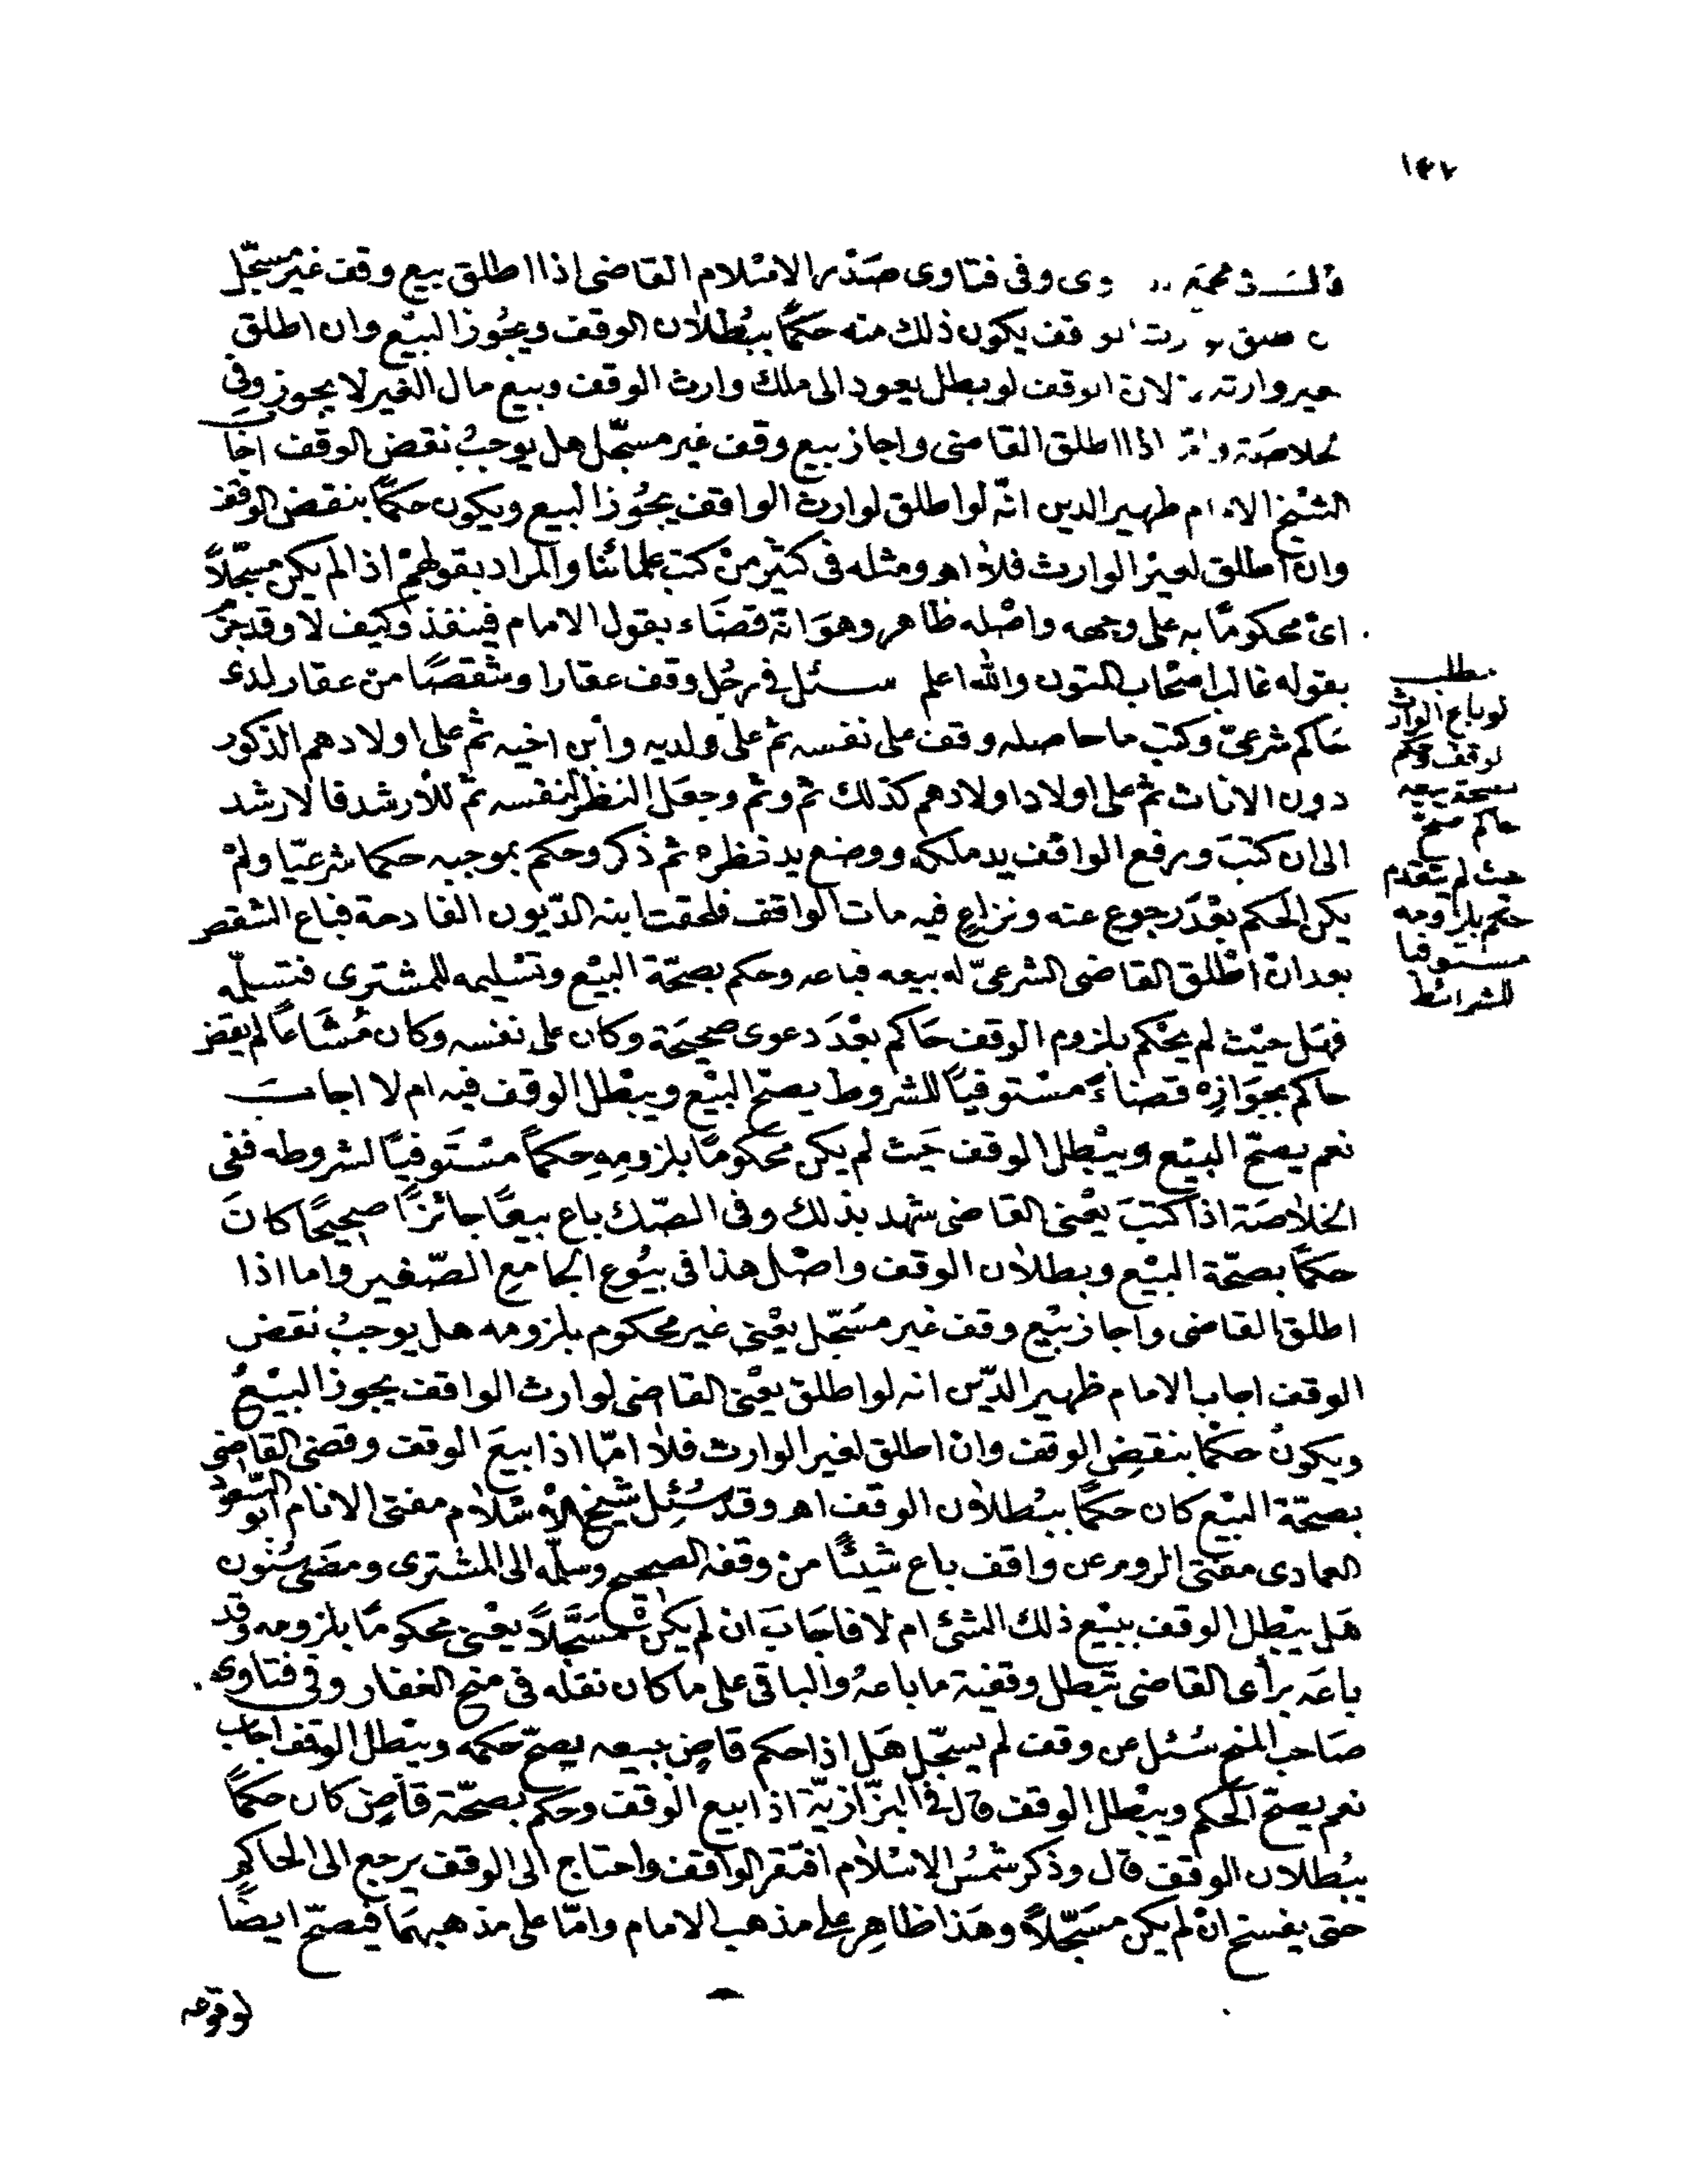 ١٤٢
وى وفى فتاوى صَدْر الاسْلام القاضى اذا اطلق بيع وقف غيْر مسجّل
قف يكون ذلك منه حكمًا ببُطلان الوقف ويجُوز البيْع وان اطلق
لان الوقف لو بطل يعود الى ملك وارث الوقف وبيع مال الغير لا يجوز وفى
اذا اطلق القاضى واجاز بيع وقف غير مسجّل هل يوجبُ نقض الوقف اجَابَ
الشيْخ الامام ظهير الدين انّه لو اطلق لوارث الواقف يجُوز البيع ويكون حكمًا بنقض الوقف
وان اطلق لغيْر الوارث فلا اهـ ومثله فى كثيْر منْ كتب علمائنا والمراد بقولهمْ اذا لم يكن مسجّلًا
اىْ محكومًا به على وجهه واصْله ظاهر وهوَ انّه قضَاء بقول الامام فينفذ وكيْف لا وقد جزَم
بقوله غالب اصْحاب المتون والله اعلم سئل فى رجُل وقف عقارا وشقصًا من عقار لدى
حَاكم شرعىّ وكتب ما حاصله وقف على نفسه ثم على ولديه وابن اخيه ثم على اولادهم الذكور
دون الاناث ثم على اولاد اولادهم كذلك ثم وثم وجعَل النظر لنفسه ثم للأرشد فالارشد
الى ان كتبَ ورفع الواقف يد ملكه ووضع يد نظره ثم ذكر وحكم بموجبه حكما شرعيّا ولمْ
يكن الحكم بعْدَ رجوع عنه ونزاعٍ فيه مات الواقف فلحقت ابنه الدّيون الفادحة فباع الشقص
بعد انْ اطْلق القاضى الشرعىّ له بيعه فباعه وحكم بصحّة البيْع وتسْليمه للمشترى فتسلّمه
فهَل حيْث لم يحْكم بلزوم الوقف حَاكم بعْدَ دعوى صحيحَة وكان على نفسه وكان مُشَاعًا لم يقض
حاكم بجوَازه قضاءً مسْتوفيًا للشروط يصحّ البيْع ويبْطل الوقف فيه ام لا اجابَ
نعم يصحّ البيْع ويبْطل الوقف حَيث لم يكن محكومًا بلزومِهِ حكمًا مسْتَوفيًا لشروطه ففى
الخلاصَة اذا كتبَ يعْنى القاضى شهد بذلك وفى الصّك باع بيعًا جائزًا صحيحًا كانَ
حكمًا بصحّة البيْع وبطلان الوقف واصْل هذا فى بيُوع الجامع الصّغير واما اذا
اطلق القاضى واجاز بيْع وقف غير مسَجّل يعْنى غير محكوم بلزومه هل يوجبُ نقض
الوقف اجاب الامام ظهير الدّين انه لو اطلق يعْنى القاضى لوارث الواقف يجوز البيْعُ
ويكونُ حكْمًا بنقضِ الوقف وان اطلق لغير الوارث فلا امّا اذا بيعَ الوقف وقضى القاضى
بصحّة البيْع كان حكمًا ببُطلان الوقف اهـ وقد سُئِل شيْخ الاسْلام مفتى الانام ابو السّعود
العمادى مفتى الروم عن واقف باع شيْئًا منْ وقفه الصحيح وسلّمه الى المشترى ومضَى سنُون
هَل يبْطل الوقف ببيْع ذلك الشئ ام لا فاجَابَ ان لم يكنْ مسَجَّلًا يعْنى محكومًا بلزومه وقد
باعَه برأى القاضى تبْطل وقفية ما باعهُ والباقى على ما كان نقله فى منح الغفار وفى فتاوى
صَاحب المنح سُئل عن وقف لم يسجّل هَل اذا حكم قاضٍ ببيعه يصحّ حكمه ويبْطل الوقف اجاب
نعم يصحّ الحكم ويبْطل الوقف قال فى البزّازيّة اذا بيع الوقف وحكم بصحّته قاضٍ كان حكمًا
ببُطلان الوقف قال وذكر شمْسُ الاسْلام افتقر الواقف واحتاج الى الوقف يرجع الى الحاكم
حتى يفسخ انْ لم يكن مسَجّلًا وهَذا ظاهِر على مذهب الامام وامّا على مذهبهمَا فيصحّ ايضًا
لوقوعه
مطلب
لو باع الوارث
لوقف وحكم
بصحة بيعه
حاكم صح
حيث لم يتقدم
حكم بلزومه
مستوفيا
للشرائط